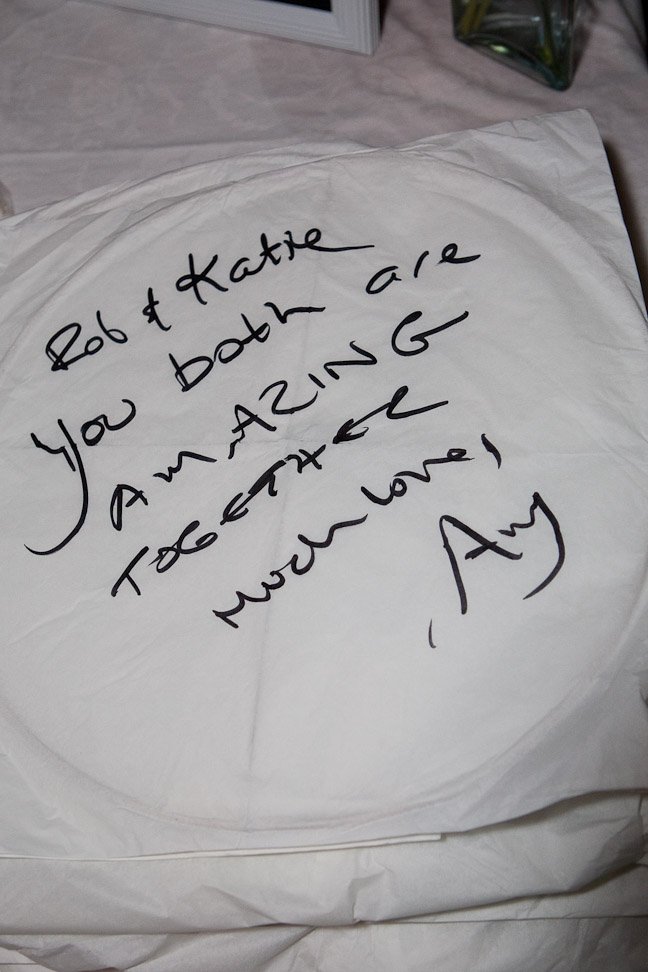 Rob & Katie
You both are
AMAZING
TOGETHER
Much love,
Amy